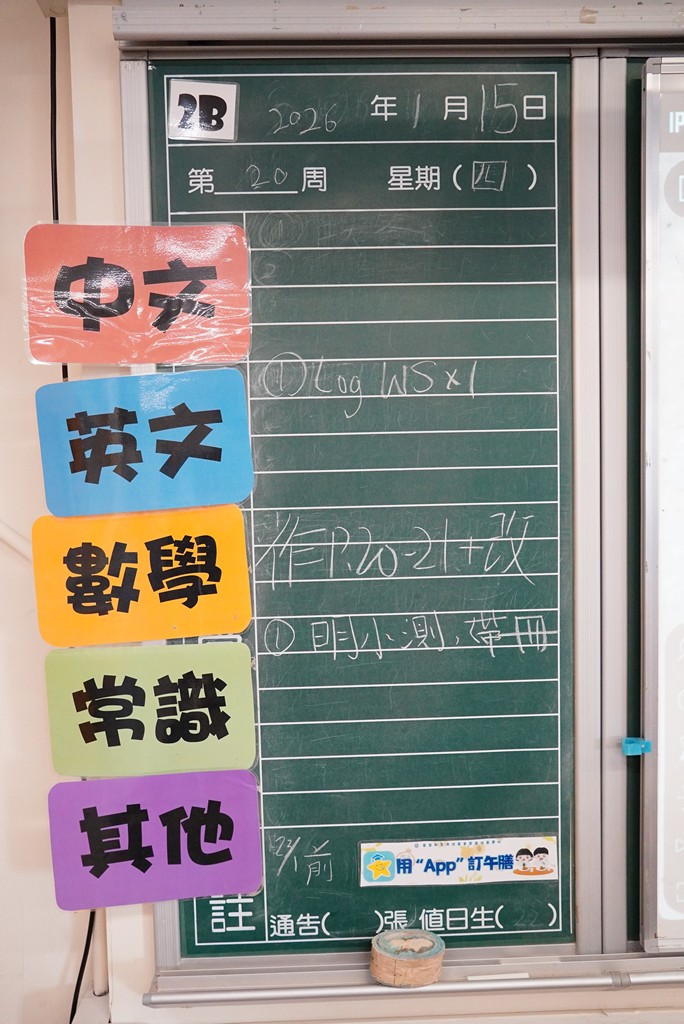 2B 2026 年 1 月 15 日
第 20 周 星期 ( 四 )
中文
英文 ① Log WS x 1
數學 作P.20-21+改
常識 ① 明小測，帶冊
其他 23/1 前
用 “App” 訂午膳
註 通告( )張 值日生( 22 )
IP